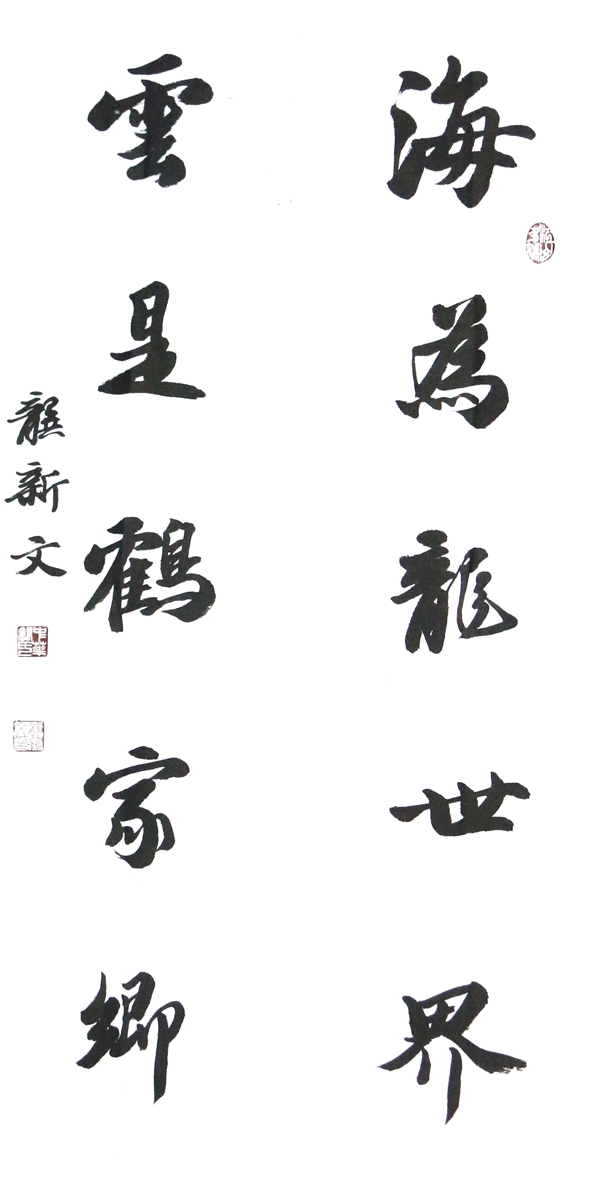 海為龍世界
雲是鶴家鄉
龔新文